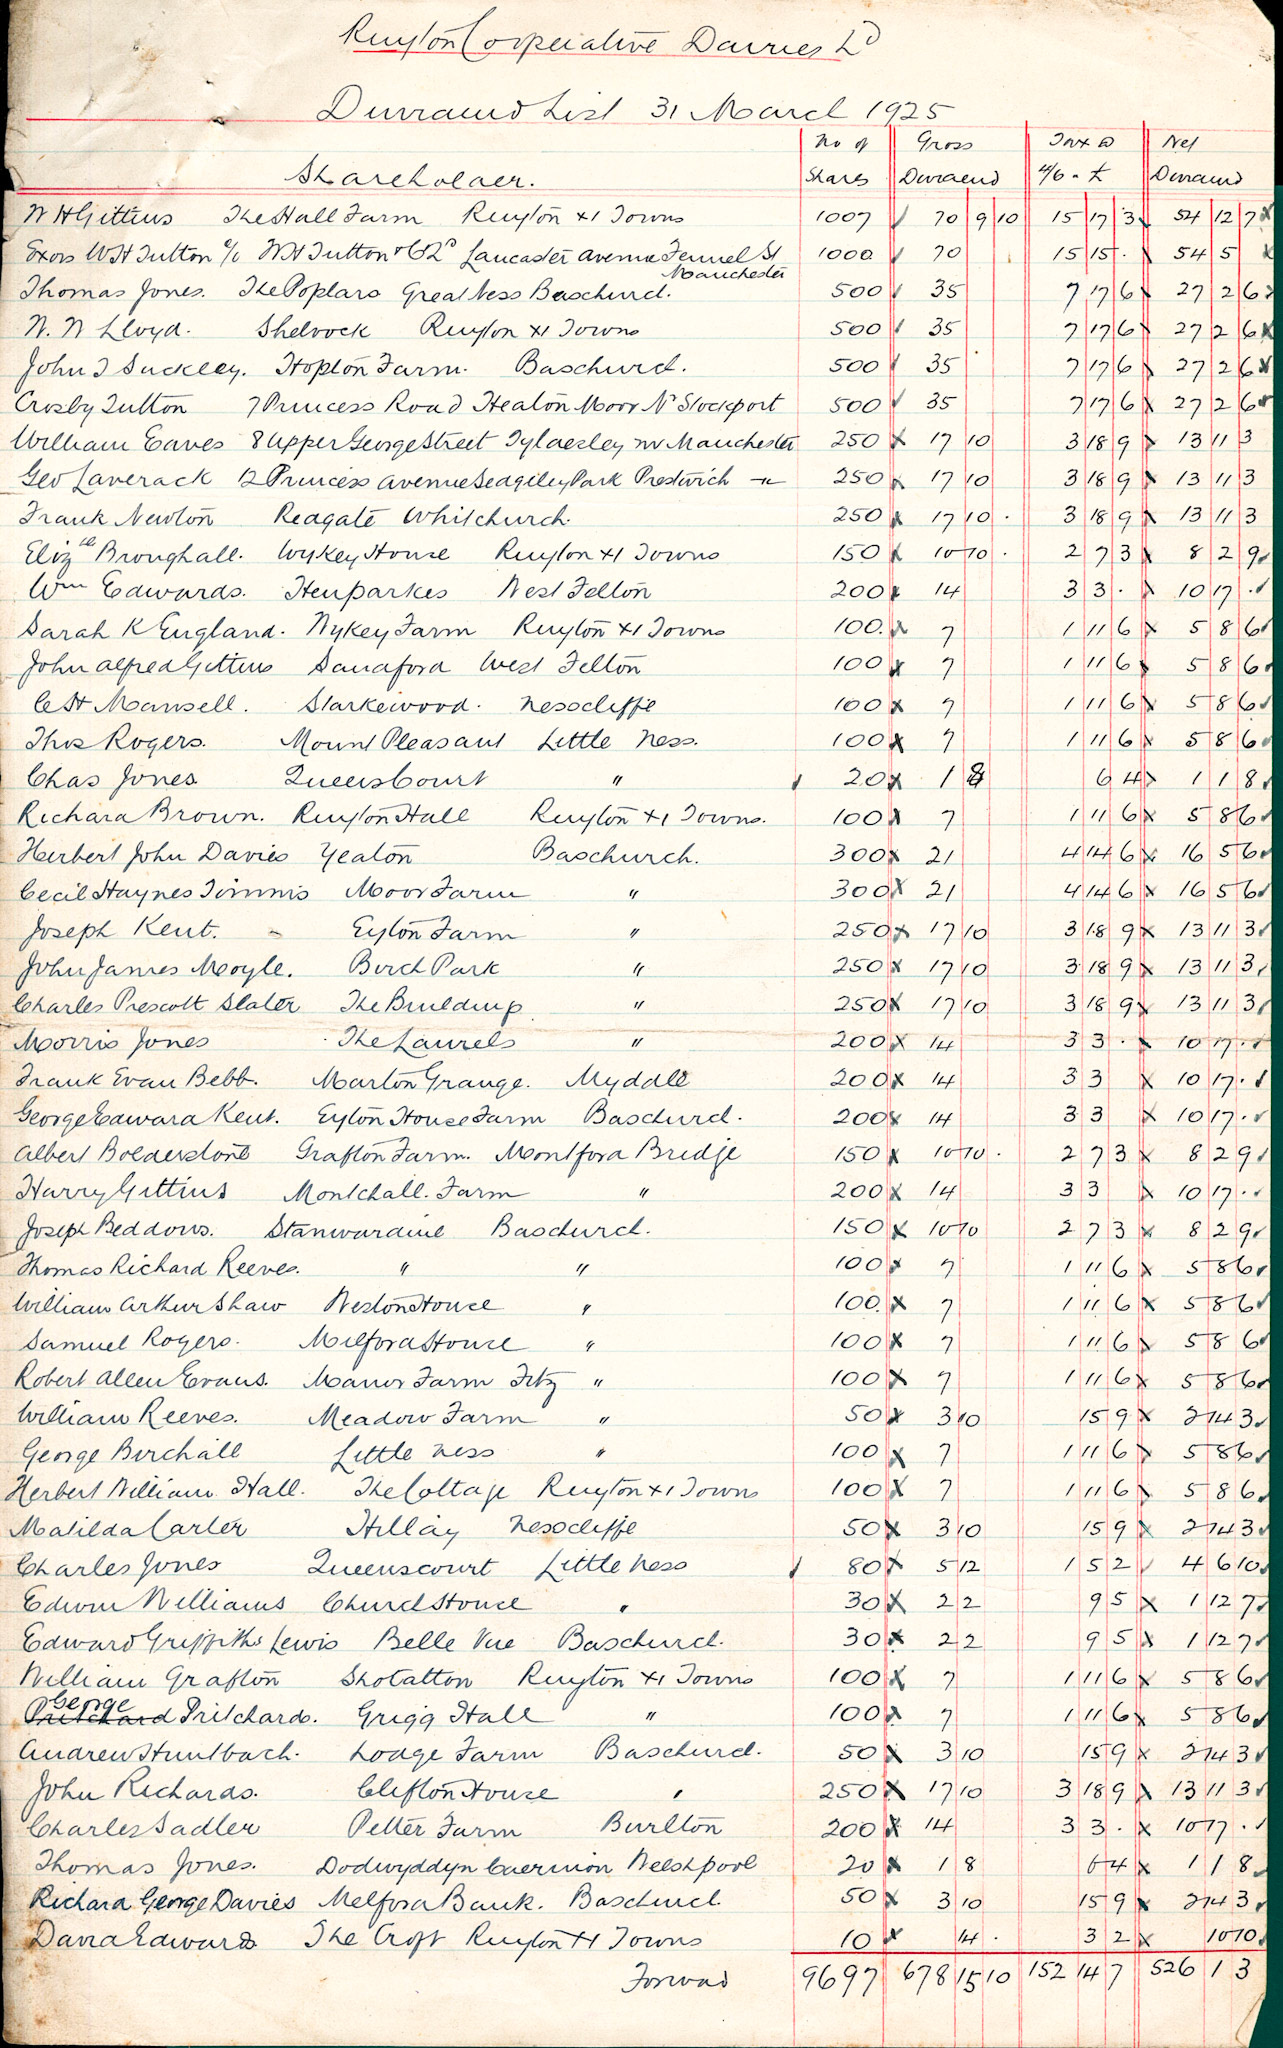 Ruyton Cooperative Dairies Ld
Dividend List 31 March 1925
Shareholder. No of Shares Gross Dividend Tax @ 4/6 - £ Net Dividend
W H Gittins The Hall Farm Ruyton X1 Towns 1007 70 9 10 15 17 3 54 12 7
Exors W H Tutton c/o W H Tutton & Co Ld Lancaster Avenue Fennel St Manchester 1000 70 15 15 . 54 5
Thomas Jones. The Poplars Great Ness Baschurch. 500 35 7 17 6 27 2 6
W. W Lloyd. Shelvock Ruyton X1 Towns 500 35 7 17 6 27 2 6
John T Suckley. Hopton Farm. Baschurch. 500 35 7 17 6 27 2 6
Crosby Tutton 7 Princess Road Heaton Moor Nr Stockport 500 35 7 17 6 27 2 6
William Eaves 8 Upper George Street Tyldesley nr Manchester 250 17 10 3 18 9 13 11 3
Geo Laverack 12 Princess Avenue Sedgley Park Prestwich -"- 250 17 10 3 18 9 13 11 3
Frank Newton Reagate Whitchurch. 250 17 10 . 3 18 9 13 11 3
Elizth Broughall. Wykey House Ruyton X1 Towns 150 10 10 . 2 7 3 8 2 9
Wm Edwards. Henparkes West Felton 200 14 3 3 . 10 17 .
Sarah K England. Wykey Farm Ruyton X1 Towns 100. 7 1 11 6 5 8 6
John Alfred Gittins Sandford West Felton 100 7 1 11 6 5 8 6
C H Mansell. Starkewood. Nesscliffe 100 7 1 11 6 5 8 6
Thos Rogers. Mount Pleasant Little Ness. 100 7 1 11 6 5 8 6
Chas Jones Queens Court " 20 1 8 6 4 1 1 8
Richard Brown. Ruyton Hall Ruyton X1 Towns. 100 7 1 11 6 5 8 6
Herbert John Davies Yeaton Baschurch. 300 21 4 14 6 16 5 6
Cecil Haynes Timmis Moor Farm " 300 21 4 14 6 16 5 6
Joseph Kent. - Eyton Farm " 250 17 10 3 18 9 13 11 3
John James Moyle. Birch Park " 250 17 10 3 18 9 13 11 3
Charles Prescott Slater The Building " 250 17 10 3 18 9 13 11 3
Morris Jones The Laurels " 200 14 3 3 . 10 17 .
Frank Evan Bebb. Marton Grange. Myddle 200 14 3 3 10 17 .
George Edward Kent. Eyton House Farm Baschurch. 200 14 3 3 10 17 .
Albert Bolderstone Grafton Farm. Montford Bridge 150 10 10 . 2 7 3 8 2 9
Harry Gittins Montchall. Farm " 200 14 3 3 10 17 .
Joseph Beddows. Stanwardine Baschurch. 150 10 10 2 7 3 8 2 9
Thomas Richard Reeves. " " 100 7 1 11 6 5 8 6
William Arthur Shaw Weston House " 100. 7 1 11 6 5 8 6
Samuel Rogers. Milford House " 100 7 1 11 6 5 8 6
Robert Allen Evans. Manor Farm Fitz " 100 7 1 11 6 5 8 6
William Reeves. Meadow Farm " 50 3 10 15 9 2 14 3
George Birchall Little Ness " 100 7 1 11 6 5 8 6
Herbert William Hall. The Cottage Ruyton X1 Towns 100 7 1 11 6 5 8 6
Matilda Carter Hillay Nesscliffe 50 3 10 15 9 2 14 3
Charles Jones Queenscourt Little Ness 80 5 12 1 5 2 4 6 10
Edwin Williams Church House " 30 2 2 9 5 1 12 7
Edward Griffiths Lewis Belle Vue Baschurch. 30 2 2 9 5 1 12 7
William Grafton Shotatton Ruyton X1 Towns 100 7 1 11 6 5 8 6
George
Pritchard Pritchard. Grigg Hall " 100 7 1 11 6 5 8 6
Andrew Huntbach. Lodge Farm Baschurch. 50 3 10 15 9 2 14 3
John Richards. Clifton House " 250 17 10 3 18 9 13 11 3
Charles Sadler Petter Farm Burlton 200 14 3 3 . 10 17 .
Thomas Jones. Dodwyddyn Caerinion Welshpool 20 1 8 6 4 1 1 8
Richard George Davies Melford Bank. Baschurch 50 3 10 15 9 2 14 3
David Edwards The Croft Ruyton X1 Towns 10 14 . 3 2 10 10
Forward 9697 678 15 10 152 14 7 526 1 3